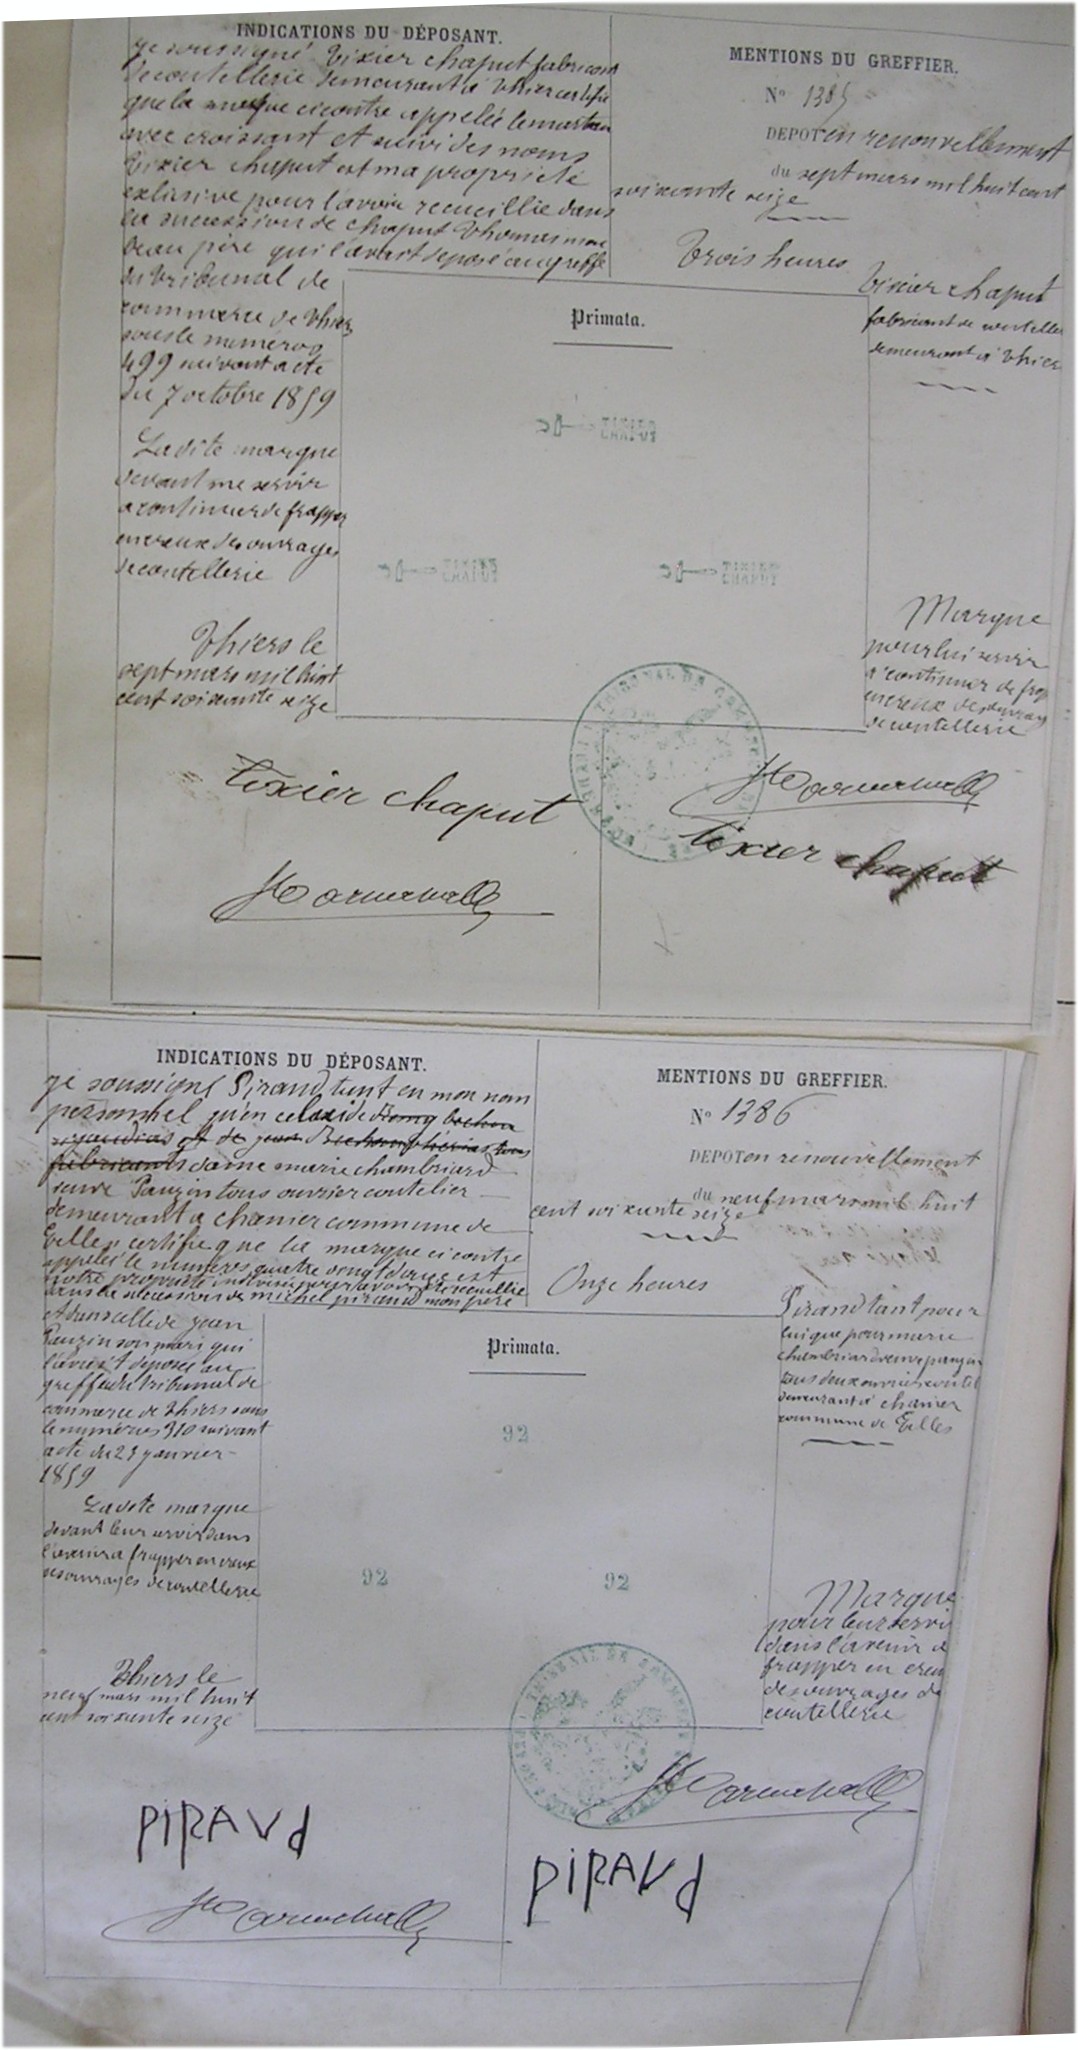 INDICATIONS DU DÉPOSANT.
je soussigné Tixier chaput fabricant
de coutellerie demeurant à Thier certifie
que la marque cicontre appelée le marteau
avec croissant et suivi des noms
Tixier chaput est ma propriété
exlusive pour l'avoir recueillie dans
la succession de chaput Thomas mon
beau père qui l'avait déposé au greffe
du tribunal de
commerce de Thiers
sous le numéros
499 suivant acte
du 7 octobre 1859
La dite marque
devant me servir
a continuer de frapper
en creux des ouvrages
de coutellerie
Thiers le
sept mars mil huit
cent soixante seize
Tixier chaput
MENTIONS DU GREFFIER.
No 1385
DEPOT en renouvellement
du sept mars mil huit cent
soixante seize
Trois heures
Tixier chaput
fabricant de coutelle
demeurant à Thier
Primata.
TIXIER
CHAPUT
TIXIER
CHAPUT
TIXIER
CHAPUT
Marque
pour lui servir
a continuer de frap
en creux des ouvrag
de coutellerie
TRIBUNAL DE COMMERCE
Tixier chaput
INDICATIONS DU DÉPOSANT.
je soussigné Piraud tant en mon nom
personnel qu'en celui de
fabricants dame marie chambriard
veuve Pauzin tous ouvrier coutelier
demeurant a chanier commune de
Celles certifie que la marque cicontre
appelée le numéros quatre vingt douze est
notre propriété indivise pour l'avoir recueillie
dans la succession de michel piraud mon père
et dans celle de jean
Pauzin son mari qui
l'avait déposée au
greffe du tribunal de
commerce de Thiers sous
le numéros 310 suivant
acte du 23 janvier
1859
La dite marque
devant leur servir dans
l'avenir a frapper en creux
des ouvrages de coutellerie
Thiers le
neuf mars mil huit
cent soixante seize
PIRAUd
MENTIONS DU GREFFIER.
No 1386
DEPOT en renouvellement
du neuf mars mil huit
cent soixante seize
Onze heures
Piraud tant pour
lui que pour marie
chambriard veuve pauzin
tous deux ouvriers coutel
demeurant à chanier
commune de Celles
Primata.
92
92
92
Marque
pour leur servi
dans l'avenir a
frapper en creu
des ouvrages de
coutellerie
TRIBUNAL DE COMMERCE
PIRAUd